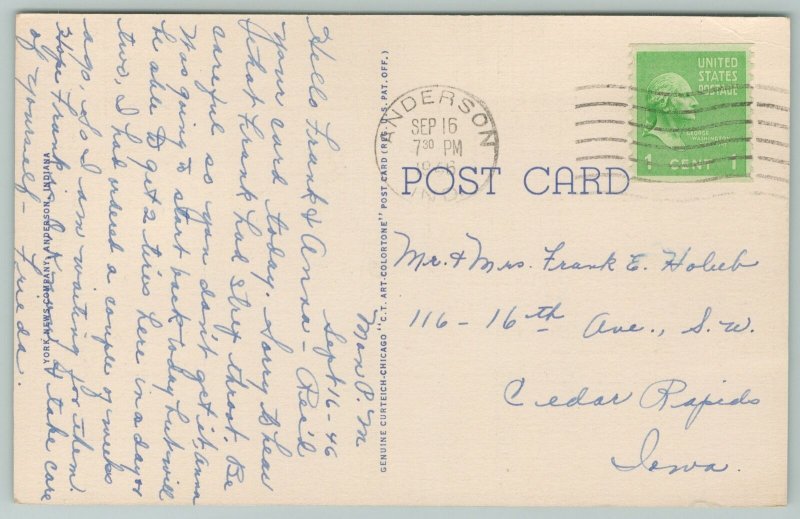 Mon P. M
Sept 16-46
Hello Frank & Anna - Rec'd
your card today. Sorry to hear
that Frank had strep throat. Be
careful so you don't get it Anna
Was going to start back today but will
be able to get 2 tires here in a day or
two, I had ordered a couple of weeks
ago, so I am waiting for them.
Hope Frank is & take care
of yourself - Frieda.
YORK NEWS COMPANY, ANDERSON, INDIANA
GENUINE CURTEICH-CHICAGO "C.T. ART-COLORTONE" POST CARD (REG. U.S. PAT. OFF.)
ANDERSON
SEP 16
7 30 PM
1946
IND.
UNITED
STATES
POSTAGE
GEORGE
WASHINGTON
1 CENT 1
POST CARD
Mr. & Mrs. Frank E. Holub
116-16th Ave., S.W.
Cedar Rapids
Iowa.